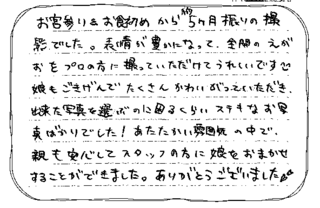 お宮参り&お食初めから約5ヶ月振りの撮
影でした。表情が豊かになって、全開のえが
おをプロの方に撮っていただけてうれしいです
娘もごきげんでたくさんかわいがっていただき、
出来た写真を選ぶのに困るくらいステキなお写
真ばかりでした!あたたかい雰囲気の中で、
親も安心してスタッフの方に娘をおまかせ
することができました。ありがとうございました